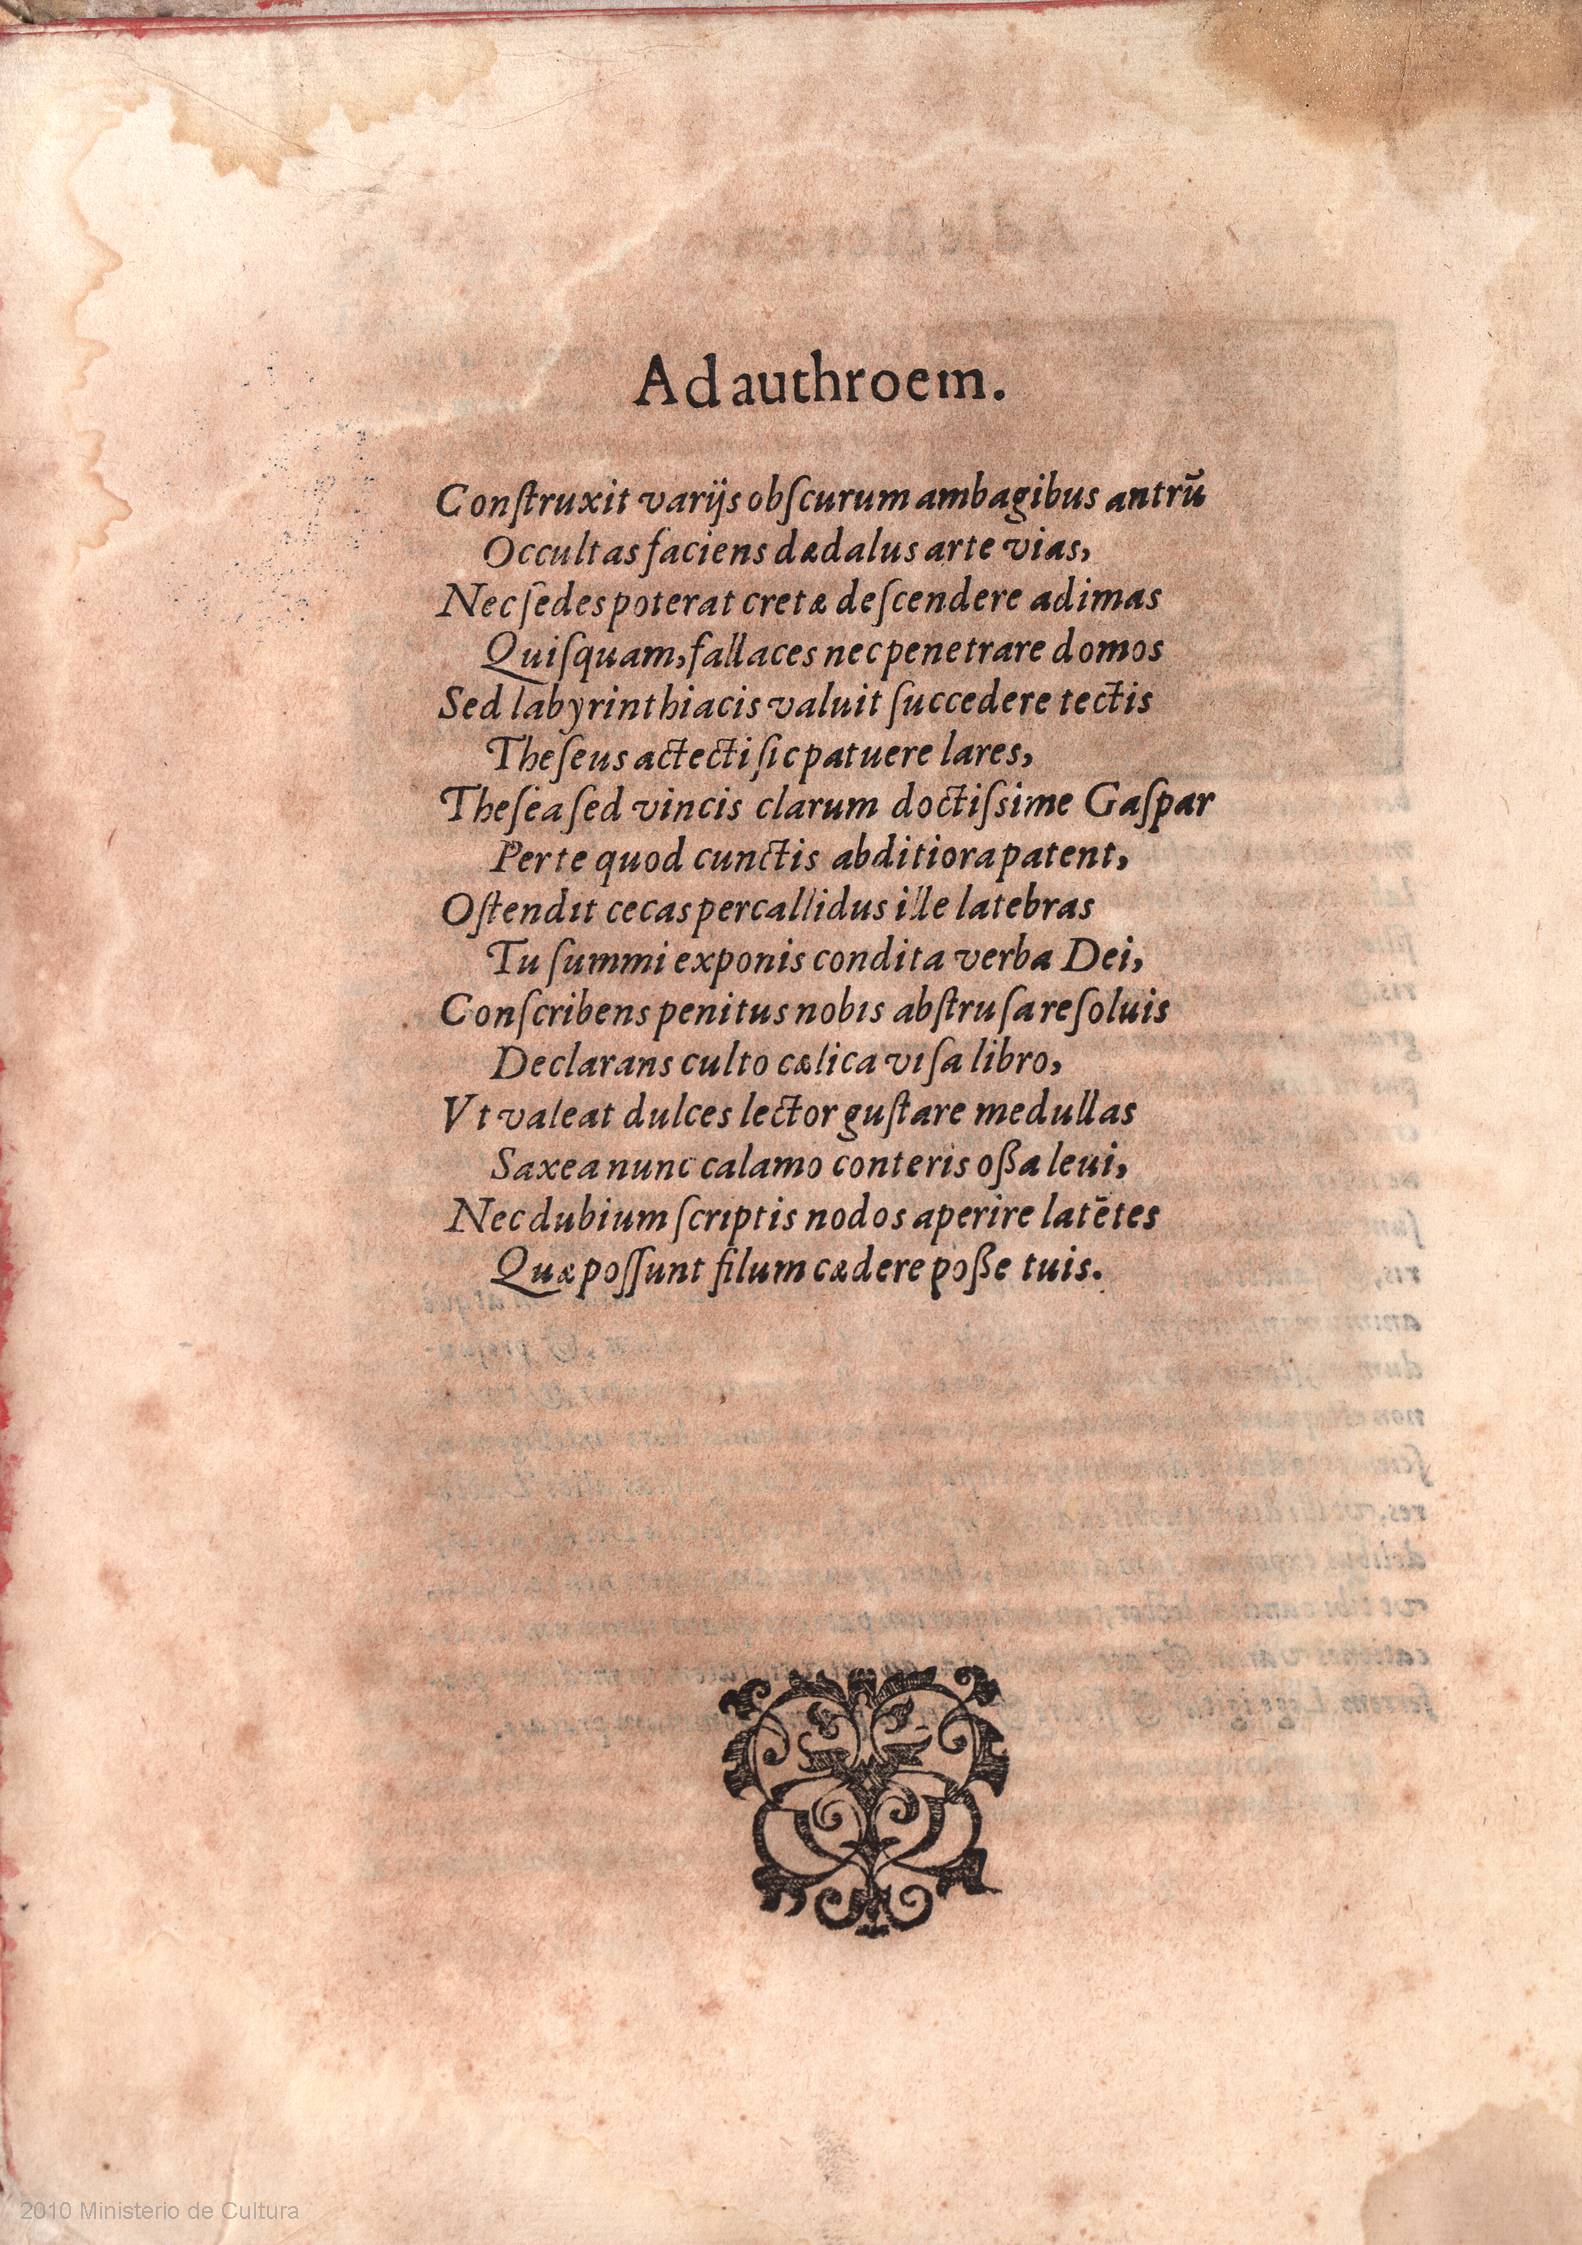 Ad authroem.
Conſtruxit varijs obſcurum ambagibus antrũ
Occultas faciens dædalus arte vias,
Nec ſedes poterat cretæ deſcendere ad imas
Quiſquam, fallaces nec penetrare domos
Sed labyrinthiacis valuit ſuccedere tectis
Theſeus ac tecti ſic patuere lares,
Theſea ſed vincis clarum doctiſsime Gaſpar
Per te quod cunctis abditiora patent,
Oſtendit cecas percallidus ille latebras
Tu ſummi exponis condita verba Dei,
Conſcribens penitus nobis abſtruſa reſoluis
Declarans culto cælica viſa libro,
Vt valeat dulces lector guſtare medullas
Saxea nunc calamo conteris oßa leui,
Nec dubium ſcriptis nodos aperire latẽtes
Quæ poſſunt filum cædere poße tuis.
2010 Ministerio de Cultura